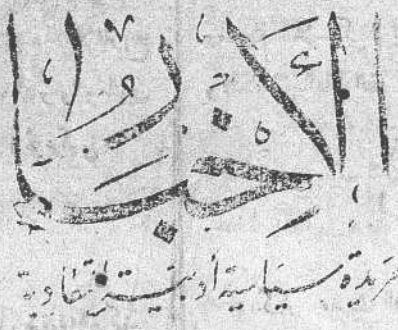 الأخبار
جريدة سياسية أدبية إنتقادية